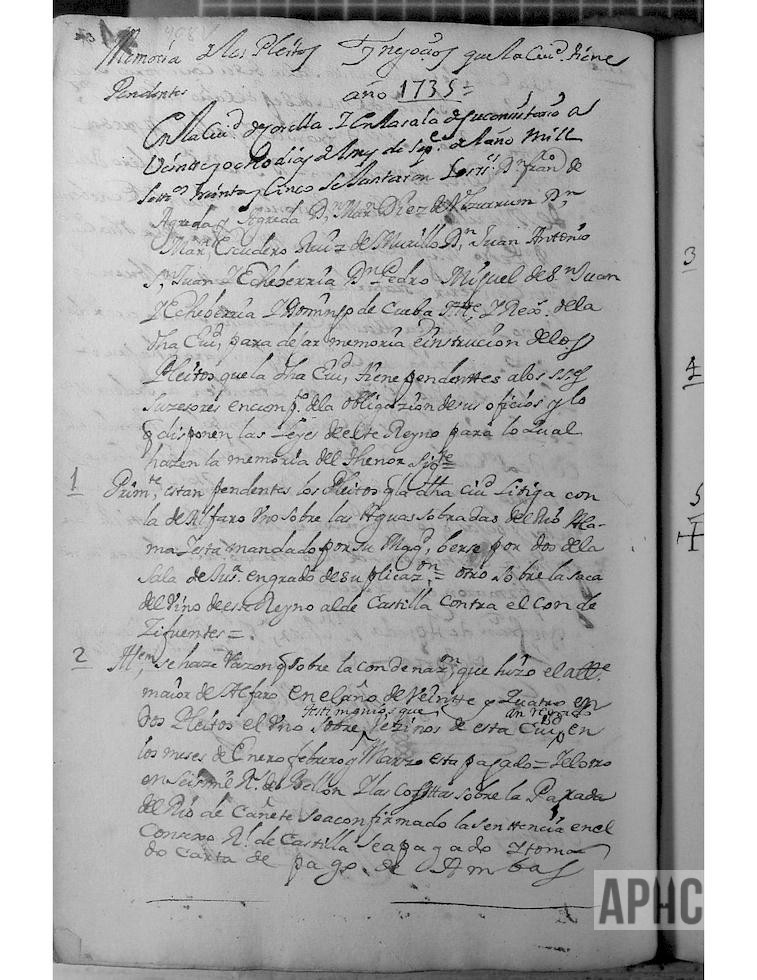 Memoria de los Pleitos Y nejocios que la Ciud. tiene
Pendentes año 1735=
En la Ciud de Corella Y En la sala de su consistorio a
Veinte y ocho dias del mes de Sepe. del año Mill
Settos. treinta y Cinco se Juntaron los ss. Dn. Franco de
Agreda y Agreda Dn. Mar. Diez de Dn.
Marl. Escudero Ruiz de Murillo Dn. Juan Antonio
Sn. Juan Y Echeberria Dn. Pedro Miguel de Sn. Juan
Y Echeberria Y Domingo de Cueba Alle. Y Rexs. de la
dha Ciud, para dejar memoria e instrucion de los
Pleitos que la dha Ciud, tiene pendenttes a los sses
suzesores en cump.o de la obligazion de sus oficios y lo
q disponen las Leyes de este Reyno para lo Qual
hazen la memoria del thenor sigte=
1 Primte, estan pendentes los Pleitos q la dha Ciud Litiga con
la de Alfaro Vno sobre las Aguas sobradas del Rio Ala-
ma Y esta mandado por su Magd, berse por dos de la
Sala de Jusa. en grado de suplicazon.= otro sobre la saca
del Vino de este Reyno al de Castilla contra el Con de
Zifuentes=
2 Attem, se haze Razon q sobre la condenazn, que hizo el alle
maior de Alfaro en el año de Veintte y Quatro en
testimonios que
dos Pleitos el Vno sobre Vezinos de esta Ciud, en
los meses de Enero febrero y Marzo esta pagado= Y el otro
en seis mil Rs. de Bellon Y las Costtas sobre la Parada
del Rio de Cañete se a confirmado la senttencia en el
Consexo Rl. de Castilla se a pagado Y toma
do Carta de pago de Ambas
3
4
5
APHC